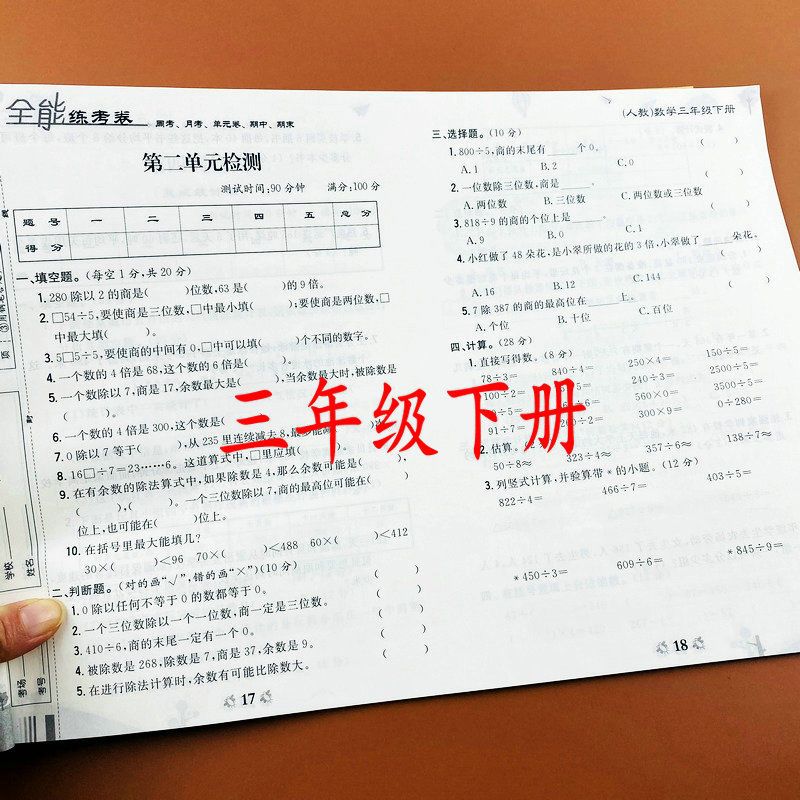 全能练考卷
周考、月考、单元卷、期中、期末
第二单元检测
测试时间:90分钟 满分:100分
题号 一 二 三 四 五 总分
得分
一、填空题。(每空1分,共20分)
1.280除以2的商是( )位数,63是( )的9倍。
2.□54÷5,要使商是三位数,□中最小填( );要使商是两位数,□
中最大填( )。
3.5□5÷5,要使商的中间有0,□中可以填( )个不同的数字。
4.一个数的4倍是68,这个数的6倍是( )。
5.一个数除以7,商是17,余数最大是( ),当余数最大时,被除数是
( )。
6.一个数的4倍是300,这个数是(
7.0除以7等于( ),从235里连续减去8,最多能
8.16□÷7=23……6。这道算式中,□里应填( )。
9.在有余数的除法算式中,如果除数是4,那么余数可能是( )
( ),( )。一个三位数除以7,商的最高位可能在( )
位上,也可能在( )位上。
10.在括号里最大能填几?
30×( )<96 70×( )<488 60×( )<412
二、判断题。(对的画“√”,错的画“×”)(10分)
1.0除以任何不等于0的数都等于0。 ( )
2.一个三位数除以一个一位数,商一定是三位数。 ( )
3.410÷6,商的末尾一定有一个0。 ( )
4.被除数是268,除数是7,商是37,余数是9。 ( )
5.在进行除法计算时,余数有可能比除数大。 ( )
17
学校
姓名
考场
考号
(人教)数学三年级下册
三、选择题。(10分)
1.800÷5,商的末尾有____个0。 ( )
A.1 B.2 C.0
2.一位数除三位数,商是____。 ( )
A.两位数 B.三位数 C.两位数或三位数
3.818÷9的商的个位上是____。 ( )
A.9 B.0 C.1
4.小红做了48朵花,是小翠所做的花的3倍,小翠做了____朵花。
( )
A.16 B.12 C.144
5.7除387的商的最高位在____上。 ( )
A.个位 B.十位 C.百位
四、计算。(28分)
1.直接写得数。(8分)
78÷3= 840÷4= 250×4= 150÷5=
100÷2= 240÷3= 2500÷5=
560×0= 3500÷5=
91÷7= 260÷2= 300×9= 0÷280=
2.估算。
50÷8≈ 323÷4≈ 357÷6≈ 138÷7≈
3.列竖式计算,并验算带*的小题。(12分)
822÷4= 466÷7= 403÷5=
*450÷3= 609÷6= *845÷9=
18
三年级下册